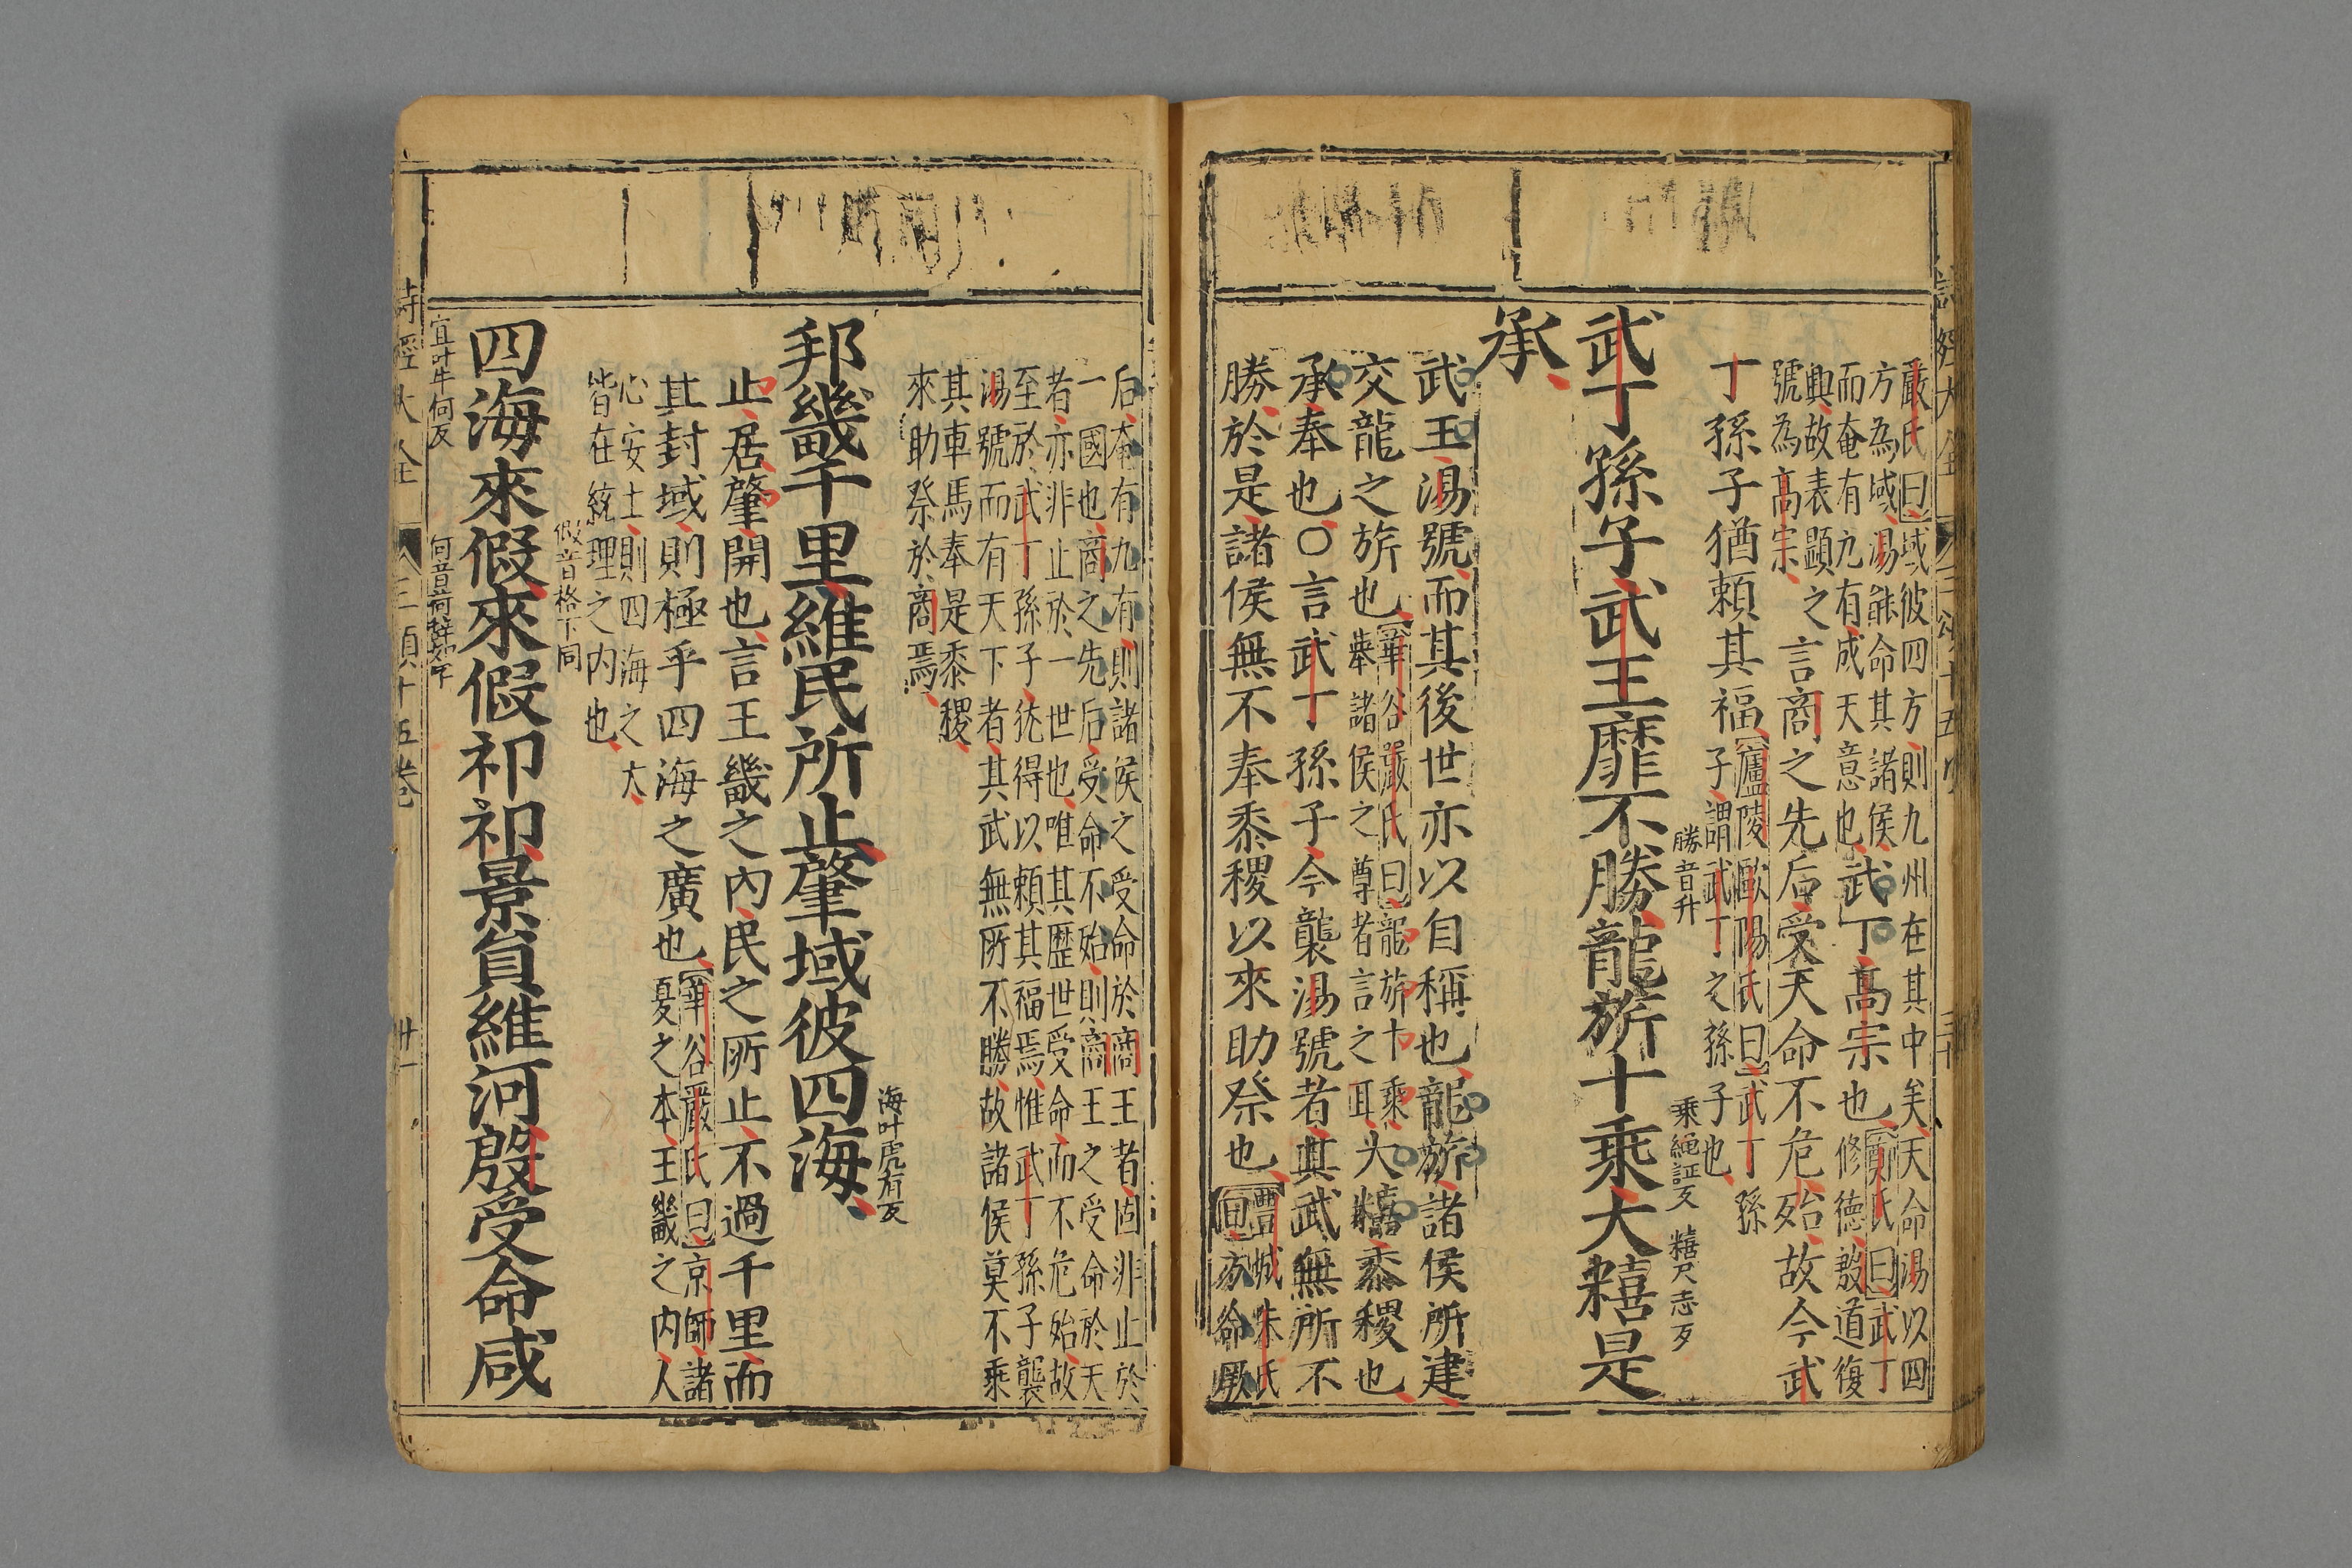 詩經大全
嚴氏曰域彼四方則九州在其中矣天命湯以四
方為域湯能命其諸侯武丁髙宗也鄭氏曰武丁
而奄有九有成天意也
修德殷道復
興故表顯之
號為髙宗言商之先后受天命不危殆故今武
丁孫子猶賴其福廬陵歐陽氏曰武丁孫
子謂武丁之孫子也
武丁孫子武王靡不勝龍旂十乗大糦是
勝音升
乗繩証反
糦尺志反
承
武王湯號而其後世亦以自稱也龍旂諸侯所建
交龍之旂也華谷嚴氏曰龍旂十乘
舉諸侯之尊者言之耳大糦黍稷也
承奉也○言武丁孫子今襲湯號者其武無所不
勝於是諸侯無不奉黍稷以來助祭也豐城朱氏
曰方命厥
后奄有九有則諸侯之受命於商王者固非止於
一國也商之先后受命不殆則商王之受命於天
者亦非止於一世也唯其歷世受命而不危殆故
至於武丁孫子猶得以賴其福焉惟武丁孫子襲
湯號而有天下者其武無所不勝故諸侯莫不乘
其車馬奉是黍稷
來助祭於商焉
邦畿千里維民所止肇域彼四海
海叶虎有反
止居肇開也言王畿之內民之所止不過千里而
其封域則極乎四海之廣也華谷嚴氏曰京師諸
夏之本王畿之內人
心安土則四海之大
皆在統理之內也
假音格下同
四海來假來假祁祁景員維河殷受命咸
宜叶牛何反
詩經大全
三頌十五卷
卄一